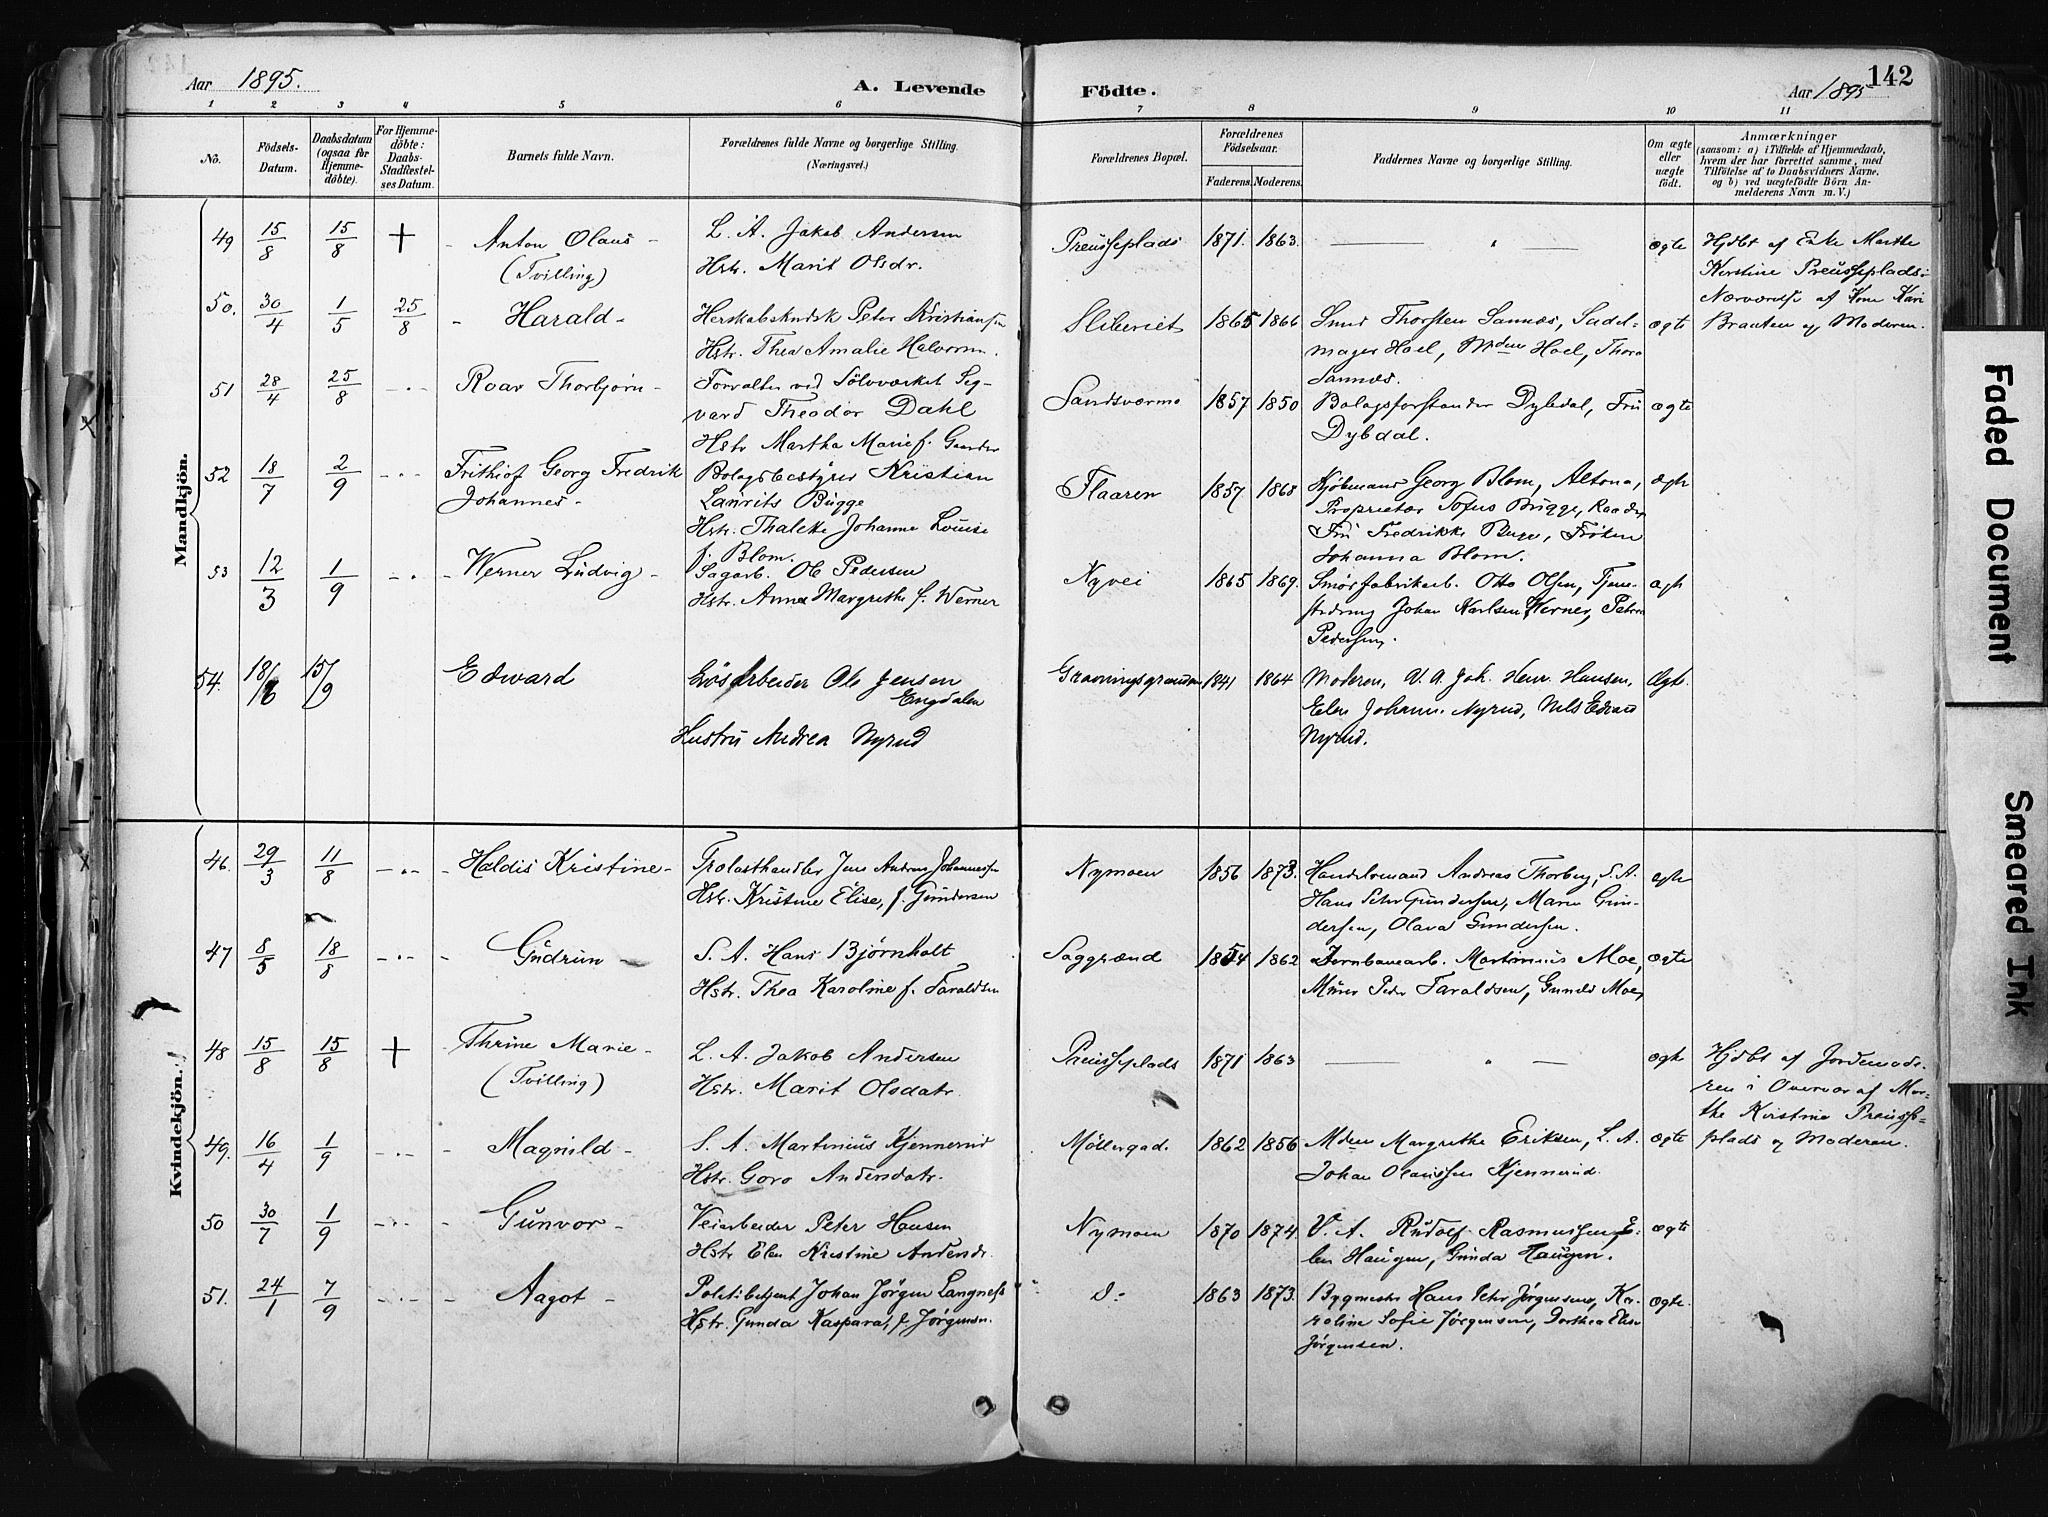 Aar 1895.
A. Levende
Födte.
142
Aar 1895
1 2 3 4 5 6 7 8 9 10 11
No.
Födsels-
Datum.
Daabsdatum
(ogsaa for
Hjemme-
döbte).
For Hjemme-
döbte:
Daabs-
Stadfæstel-
ses Datum.
Barnets fulde Navn.
Forældrenes fulde Navne og borgerlige Stilling.
(Næringsvei.)
Forældrenes Bopæl.
Forældrenes
Födselsaar.
Faderens. Moderens.
Faddernes Navne og borgerlige Stilling.
Om ægte
eller
uægte
födt.
Anmærkninger
(saasom: a) i Tilfælde af Hjemmedaab,
hvem der har forrettet samme, med
Tilföielse af to Daabsvidners Navne,
og b) ved uægtefödte Börn An-
melderens Navn m. V.)
Mandkjön.
49 15/8 15/8 + - Anton Olaus -
(Tvilling)
L. A. Jakob Andersen
Hstr. Marit Olsdr.
Preusseplads 1871. 1863. — " — ægte
Hjdbt af Enke Marthe
Kerstine Preusseplads i
Nærværelse af Kone Kari
Braaten og Moderen.
50. 30/4 1/5 25/8 - Harald -
Herskabskudsk Peter Kristiansen
Hstr. Thea Amalie Halvorsen.
Sliberiet 1865 1866
Smed Thorsten Sannæs, Sadel-
mager Hoel, Mden Hoel, Thora
Sannæs.
ægte
51 28/4 25/8 - " - Roar Thorbjørn -
Forvalter ved Sölvværket Sig-
vard Theodor Dahl
Hstr Martha Marie f. Gaarder
Sandsværmo 1857 1850
Bolagsforstander Dybdal, Fru
Dybdal.
ægte
52 18/7 2/9 - " - Frithiof Georg Fredrik
Johannes -
Bolagsbestyrer Kristian
Laurits Bugge
Hstr. Thalcke Johanne Louise
f. Blom.
Flaaren 1857 1868
Kjøbmand Georg Blom, Altona,
Proprietær Sofus Bugge, Raade,
Fru Fredrikke Bugge, Frøken
Johanna Blom.
ægte
53 12/3 1/9 - " - Werner Ludvig -
Sagarb. Ole Pedersen
Hstr. Anna Margrethe f. Werner
Nyvei 1865 1869.
Smørfabrikarb. Otto Olsen, Tjene-
stedreng Johan Karlsen Werner, Petra
Pedersen.
ægte
54. 18/6 15/9 Edward
Løsarbeider Ole Jensen
Engdalen
Hustru Andrea Nyrud
Gravningsgrænden 1841 1864
Moderen, V. A. Joh. Henr. Hansen,
Elen Johanne Nyrud, Nils Edvard
Nyrud.
Ægte.
Kvindekjön.
46. 29/3 11/8 - " - Haldis Kristine -
Trelasthandler Jens Andreas Johannessen
Hstr. Kristine Elise, f. Gundersen
Nymoen 1856 1873.
Handelsmand Andreas Thorberg, S. A.
Hans Peter Gundersen, Maren Gun-
dersen, Olava Gundersen.
ægte
47 8/5 18/8 - " - Gudrun -
S. A. Hans Bjørnholt
Hstr. Thea Karoline f. Taraldsen
Saggrænd 1854 1862
Jernbanearb. Martinius Moe,
Murer Peder Taraldsen, Gunild Moe,
ægte
48 15/8 15/8 + - Thrine Marie -
(Tvilling)
L. A. Jakob Andersen
Hstr. Marit Olsdatr.
Preusseplads 1871 1863 — " — ægte
Hjdbt af Jordemode-
ren i Overvær af Mar-
the Kirstine Preusse-
plads og Moderen.
49. 16/4 1/9 - " - Magnild -
S. A. Martinius Kjennerud
Hstr. Goro Andersdatr.
Möllergad. 1862 1856
Mden Margrethe Eriksen, L. A.
Johan Olaussen Kjennerud.
ægte
50 30/7 1/9 - " - Gunvor -
Veiarbeider Peter Hansen
Hstr Elen Kristine Andersdr.
Nymoen 1870 1874.
V. A. Rudolf Rasmussen, E-
len Haugen, Gunda Haugen.
ægte
51. 24/1 7/9 - " - Aagot -
Politibetjent Johan Jørgen Langnæss
Hstr. Gunda Kaspara, f. Jørgensen.
d- 1863 1873.
Bygmester Hans Peter Jørgensen, Ka-
roline Sofie Jørgensen, Dorthea Elise
Jørgensen.
ægte.
Faded Document
Smeared Ink